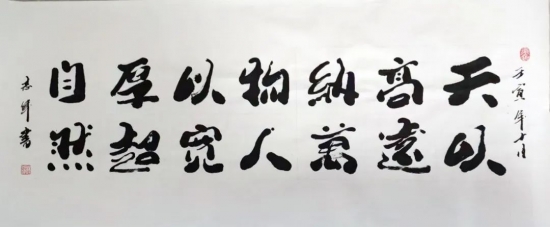 壬寅年十月
天以
高遠
納萬
物人
以寬
厚超
自然
書